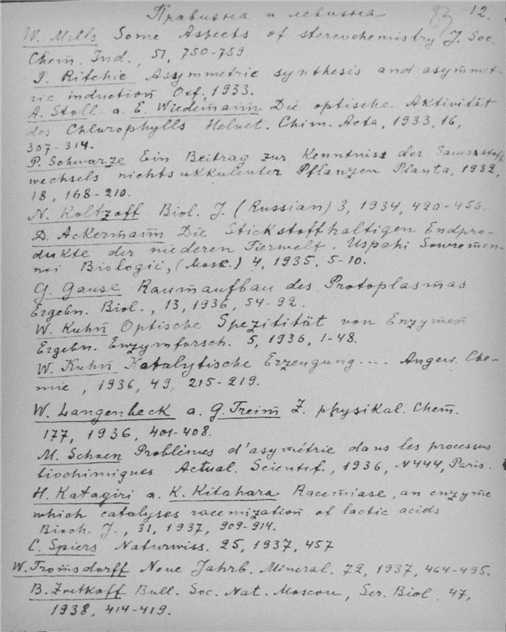 Правизна и левизна 83 12.
W. Mills Some Aspects of stereochemistry J. Soc.
Chem. Ind., 51, 750-759.
I. Ritchie Assymmetric synthesis and asymmet-
ric induction Oxf. 1933.
A. Stoll a. E. Wiedemann Die optische Aktivität
des Chlorophylls Helvet. Chim. Acta, 1933, 16,
307-314.
P. Schwarze Ein Beitrag zur Kenntniss des Sauerstoff
wechsels nichtsukkulenter Pflanzen Planta, 1932,
18, 168-210.
N. Koltzoff Biol. J. (Russian) 3, 1934, 420-456.
D. Ackermann Die Stickstoffhaltigen Endpro-
dukte der niederen Tierwelt. Uspehi Sowremen-
noi Biologii, (Mosc.) 4, 1935, 5-10.
G. Gause Raumaufbau des Protoplasmas
Ergebn. Biol., 13, 1936, 54-92.
W. Kuhn Optische Spezifität von Enzymen
Ergebn. Enzymforsch. 5, 1936, 1-48.
W. Kuhn Katalytische Erzeugung.... Angew. Che-
mie, 1936, 49, 215-219.
W. Langenbeck a. G. Treim Z. physikal. Chem.
177, 1936, 401-408.
M. Schoen Problèmes d'asymétrie dans les processus
biochimiques Actual. Scientif., 1936, N444, Paris.
H. Katagiri a. K. Kitahara Racemiase, an enzyme
which catalyses racemization of lactic acids
Bioch. J., 31, 1937, 909-914.
C. Spiers Naturwiss. 25, 1937, 457
W. Tromsdorff Neue Jahrb. Mineral. 72, 1937, 464-495.
B. Zoetkoff Bull. Soc. Nat. Moscou, Ser. Biol. 47,
1938, 414-419.